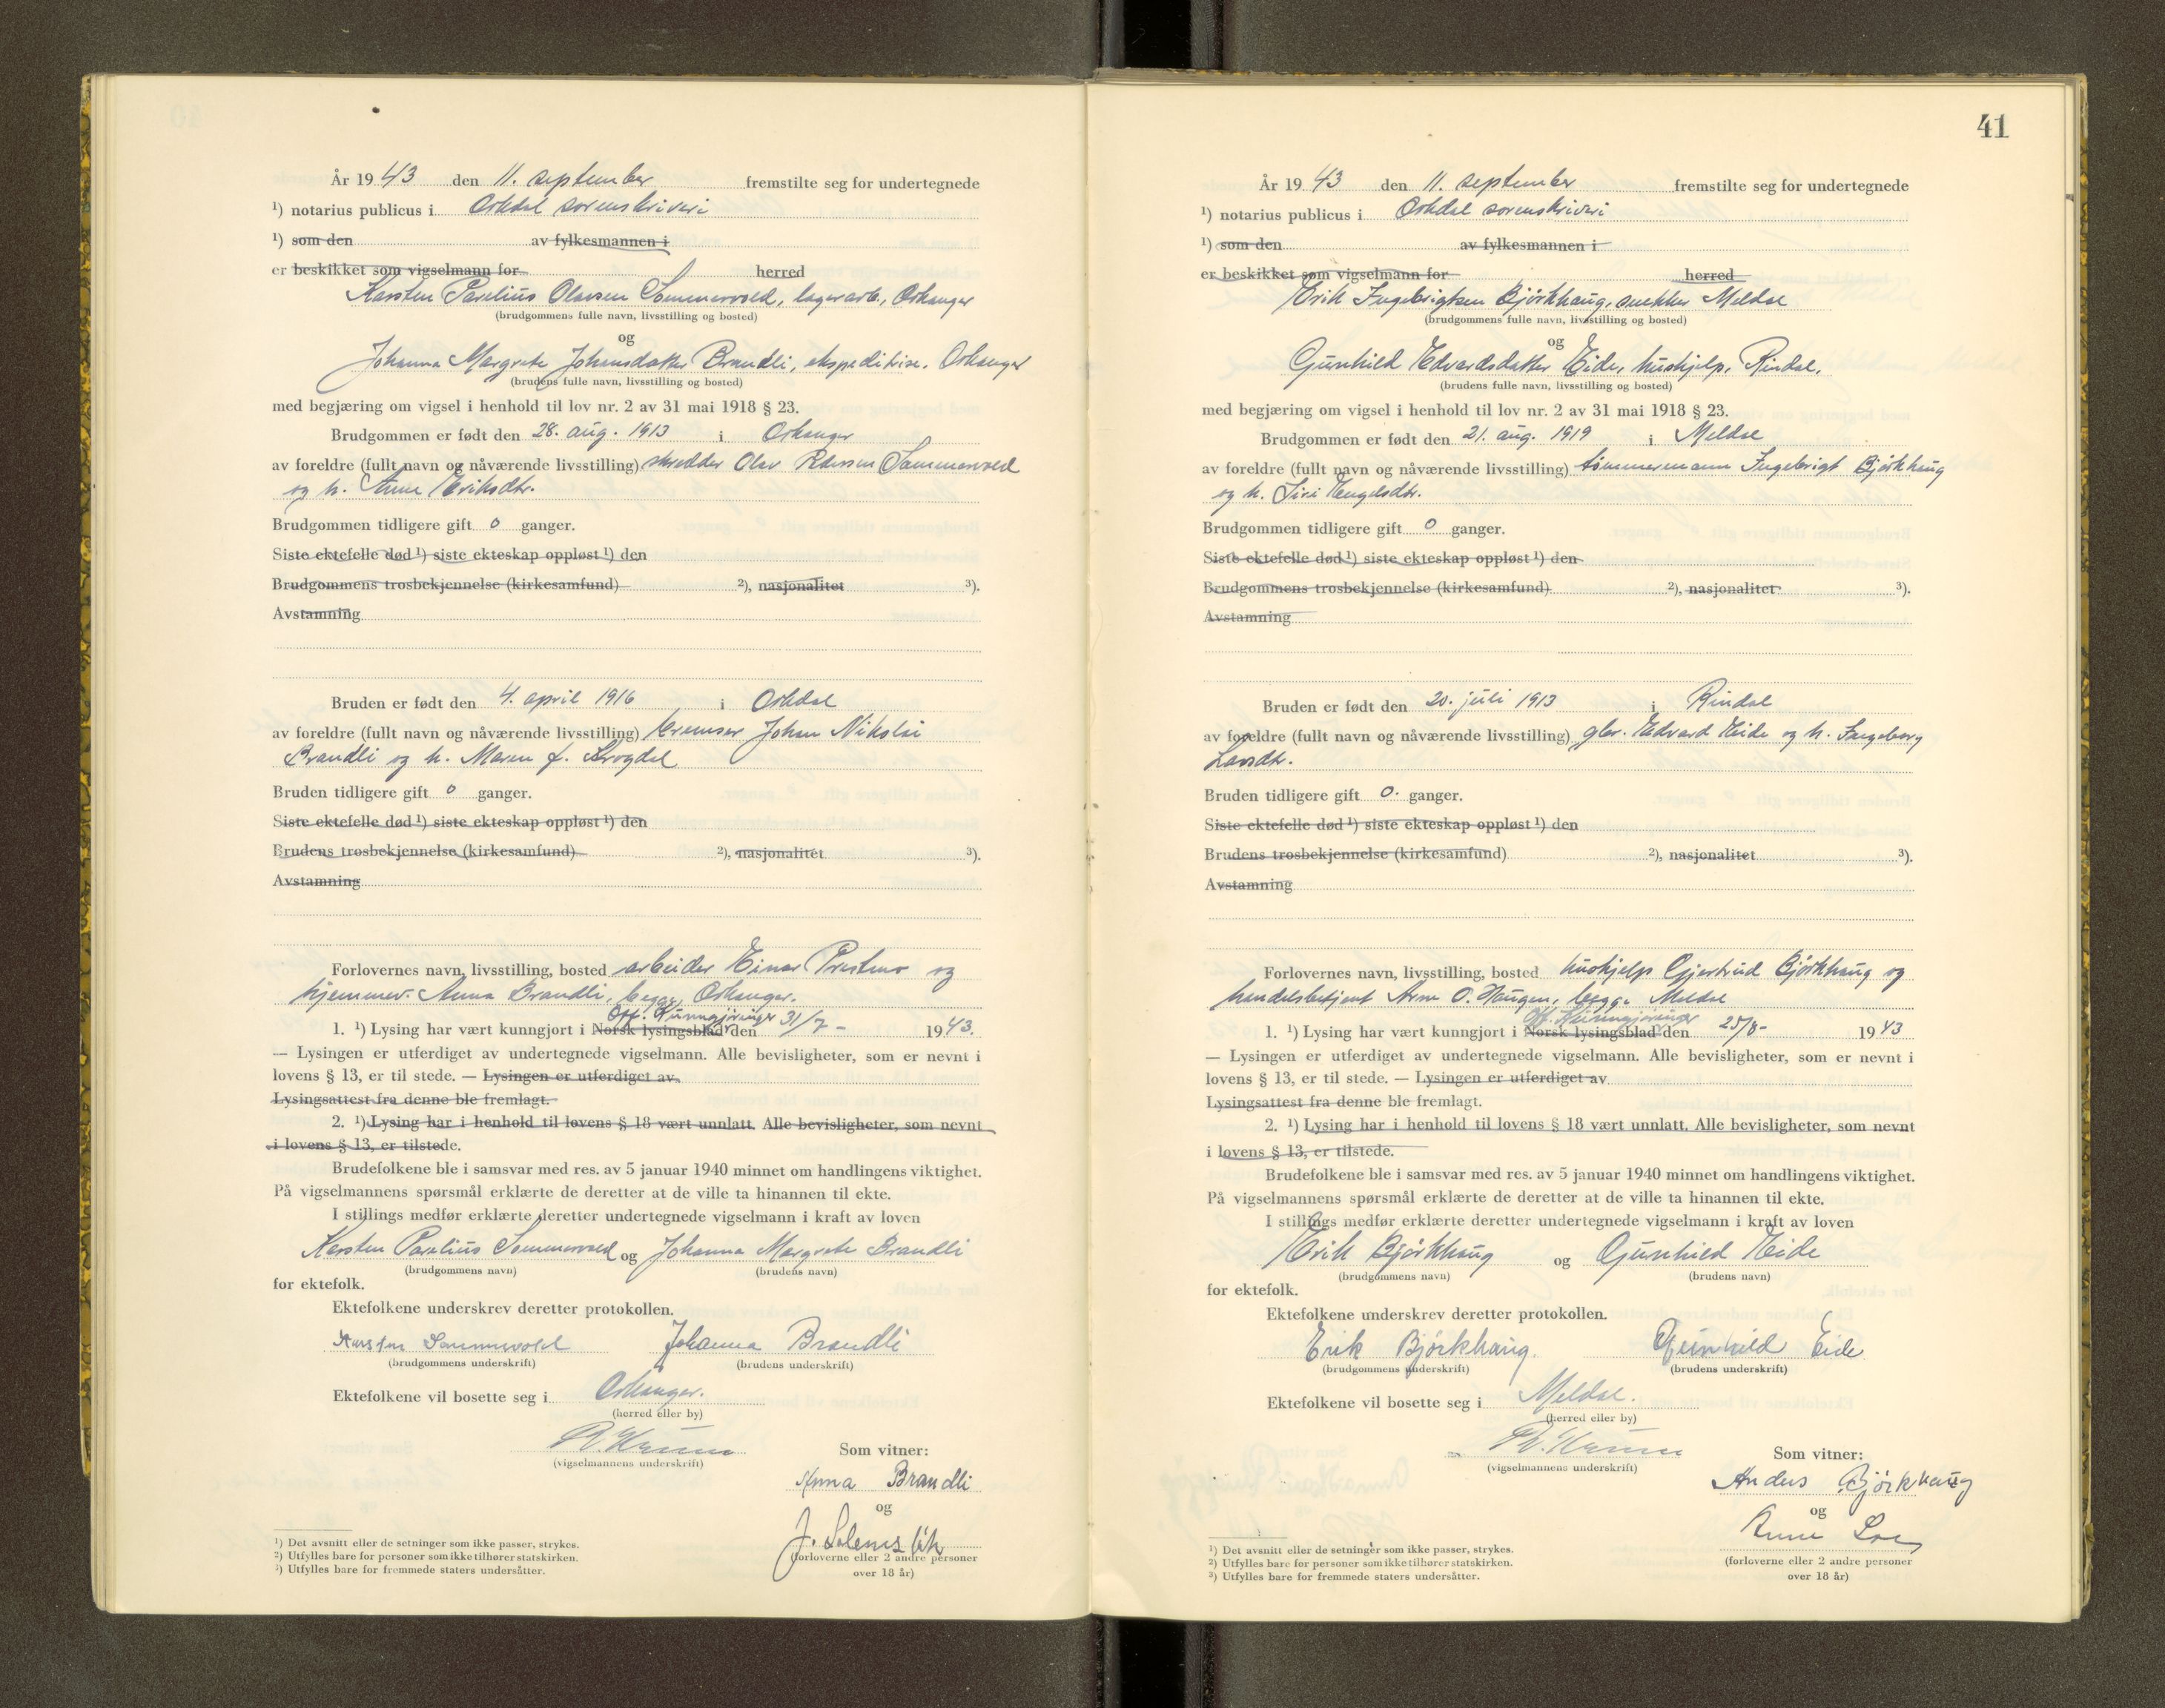 År 1943 den 11. september fremstilte seg for undertegnede
¹) notarius publicus i Orkdal sorenskriveri
¹) som den av fylkesmannen i
er beskikket som vigselmann for herred
Karsten Parelius Olavsen Sommervold, lagerarb., Orkanger
(brudgommens fulle navn, livsstilling og bosted)
og
Johanna Margrete Johansdatter Brandli, ekspeditrise, Orkanger
(brudens fulle navn, livsstilling og bosted)
med begjæring om vigsel i henhold til lov nr. 2 av 31 mai 1918 § 23.
Brudgommen er født den 28. aug. 1913 i Orkanger
av foreldre (fullt navn og nåværende livsstilling) skredder Olav Sommervold
og h. Anne Eriksdtr.
Brudgommen tidligere gift 0 ganger.
Siste ektefelle død ¹) siste ekteskap oppløst ¹) den
Brudgommens trosbekjennelse (kirkesamfund) ²), nasjonalitet ³).
Avstamning
Bruden er født den 4. april 1916 i Orkdal
av foreldre (fullt navn og nåværende livsstilling) bremser Johan Nikolai
Brandli og h. Maren f. Krogdal
Bruden tidligere gift 0 ganger.
Siste ektefelle død ¹) siste ekteskap oppløst ¹) den
Brudens trosbekjennelse (kirkesamfund) ²), nasjonalitet ³).
Avstamning
Forlovernes navn, livsstilling, bosted arbeider Einar Prestmo og
hjemmev. Anna Brandli, begge Orkanger.
Off. Kunngjøringer
1. ¹) Lysing har vært kunngjort i Norsk lysingsblad den 31/7 - 1943.
— Lysingen er utferdiget av undertegnede vigselmann. Alle bevisligheter, som er nevnt i
lovens § 13, er til stede. — Lysingen er utferdiget av
Lysingsattest fra denne ble fremlagt.
2. ¹) Lysing har i henhold til lovens § 18 vært unnlatt. Alle bevisligheter, som nevnt
i lovens § 13, er tilstede.
Brudefolkene ble i samsvar med res. av 5 januar 1940 minnet om handlingens viktighet.
På vigselmannens spørsmål erklærte de deretter at de ville ta hinannen til ekte.
I stillings medfør erklærte deretter undertegnede vigselmann i kraft av loven
Karsten Parelius Sommervold og Johanna Margrete Brandli
(brudgommens navn) (brudens navn)
for ektefolk.
Ektefolkene underskrev deretter protokollen.
Karsten Sommervold Johanna Brandli
(brudgommens underskrift) (brudens underskrift)
Ektefolkene vil bosette seg i Orkanger.
(herred eller by)
Som vitner:
(vigselmannens underskrift)
Anna Brandli
og
(forloverne eller 2 andre personer
over 18 år)
¹) Det avsnitt eller de setninger som ikke passer, strykes.
²) Utfylles bare for personer som ikke tilhører statskirken.
³) Utfylles bare for fremmede staters undersåtter.
41
År 1943 den 11. september fremstilte seg for undertegnede
¹) notarius publicus i Orkdal sorenskriveri
¹) som den av fylkesmannen i
er beskikket som vigselmann for herred
Erik Ingebrigtsen Bjørkhaug, snekker Meldal
(brudgommens fulle navn, livsstilling og bosted)
og
Gunhild Edvardsdatter Eide, hushjelp, Rindal.
(brudens fulle navn, livsstilling og bosted)
med begjæring om vigsel i henhold til lov nr. 2 av 31 mai 1918 § 23.
Brudgommen er født den 21. aug. 1919 i Meldal
av foreldre (fullt navn og nåværende livsstilling) tømmermann Ingebrigt Bjørkhaug
og h. Siri Engelsdtr.
Brudgommen tidligere gift 0 ganger.
Siste ektefelle død ¹) siste ekteskap oppløst ¹) den
Brudgommens trosbekjennelse (kirkesamfund) ²), nasjonalitet ³).
Avstamning
Bruden er født den 20. juli 1913 i Rindal
av foreldre (fullt navn og nåværende livsstilling) gbr. Edvard Eide og h. Ingeborg
Larsdtr.
Bruden tidligere gift 0. ganger.
Siste ektefelle død ¹) siste ekteskap oppløst ¹) den
Brudens trosbekjennelse (kirkesamfund) ²), nasjonalitet ³).
Avstamning
Forlovernes navn, livsstilling, bosted hushjelp Gjertrud Bjørkhaug og
handelsbetjent Arne O. Haugen, begge Meldal
Off. Kunngjøringer
1. ¹) Lysing har vært kunngjort i Norsk lysingsblad den 25/8 - 1943
— Lysingen er utferdiget av undertegnede vigselmann. Alle bevisligheter, som er nevnt i
lovens § 13, er til stede. — Lysingen er utferdiget av
Lysingsattest fra denne ble fremlagt.
2. ¹) Lysing har i henhold til lovens § 18 vært unnlatt. Alle bevisligheter, som nevnt
i lovens § 13, er tilstede.
Brudefolkene ble i samsvar med res. av 5 januar 1940 minnet om handlingens viktighet.
På vigselmannens spørsmål erklærte de deretter at de ville ta hinannen til ekte.
I stillings medfør erklærte deretter undertegnede vigselmann i kraft av loven
Erik Bjørkhaug og Gunhild Eide
(brudgommens navn) (brudens navn)
for ektefolk.
Ektefolkene underskrev deretter protokollen.
Erik Bjørkhaug. Gunhild Eide
(brudgommens underskrift) (brudens underskrift)
Ektefolkene vil bosette seg i Meldal.
(herred eller by)
Som vitner:
(vigselmannens underskrift)
Anders Bjørkhaug
og
(forloverne eller 2 andre personer
over 18 år)
¹) Det avsnitt eller de setninger som ikke passer, strykes.
²) Utfylles bare for personer som ikke tilhører statskirken.
³) Utfylles bare for fremmede staters undersåtter.